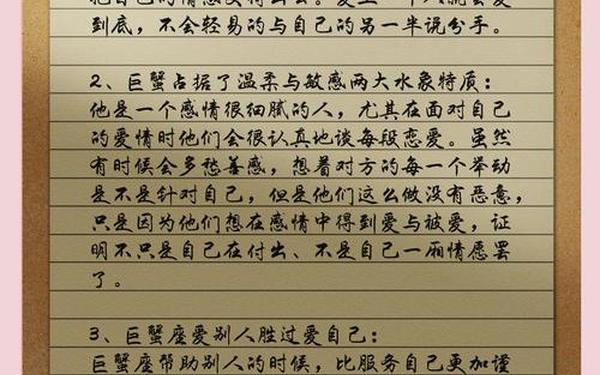 到底，不会轻易的与自己的另一半说分手。
2、巨蟹占据了温柔与敏感两大水象特质：
他是一个感情很细腻的人，尤其在面对自己
的爱情时他们会很认真地谈每段恋爱。虽然
有时候会多愁善感，想着对方的每一个举动
是不是针对自己，但是他们这么做没有恶意，
只是因为他们想在感情中得到爱与被爱，证
明不只是自己在付出、不是自己一厢情愿罢
了。
3、巨蟹座爱别人胜过爱自己：
巨蟹座帮助别人的时候，比服务自己更加谨